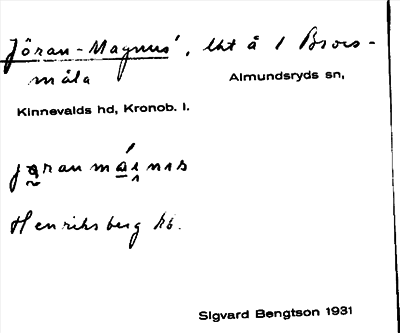 Jöran-Magnus', lht å 1 Broes-
måla
Almundsryds sn,
Kinnevalds hd, Kronob. l.
Henriksberg kb.
Sigvard Bengtson 1931